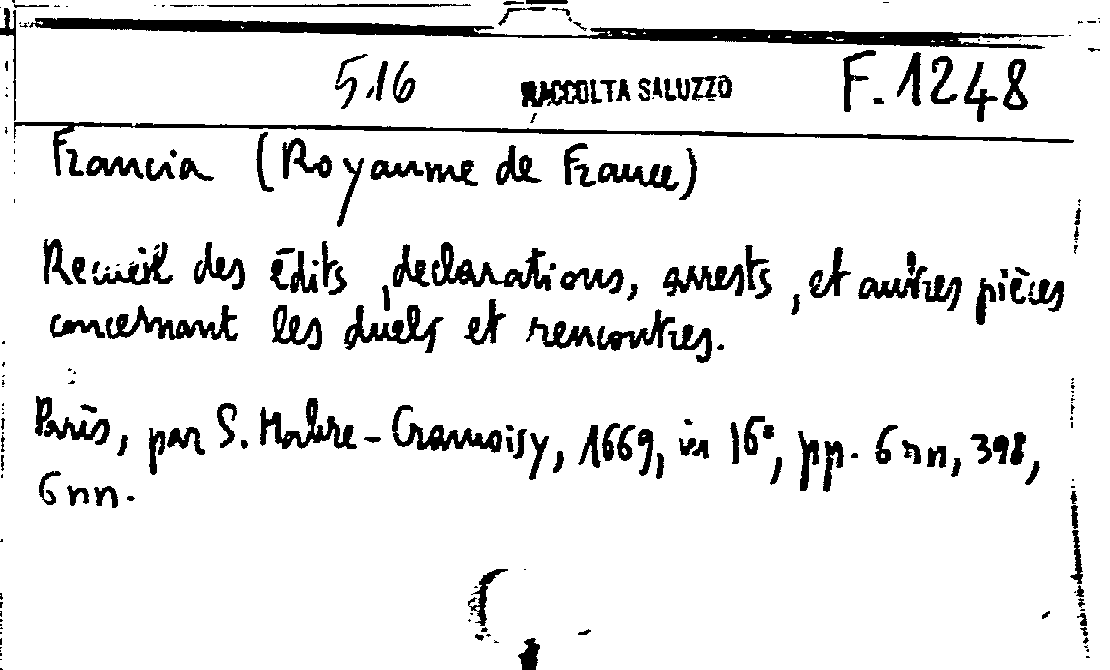 5.16 RACCOLTA SALUZZO F. 1248
Francia (Royaume de France)
Recueil des édits, declarations, arrests, et autres pièces
concernant les duels et rencontres.
Paris, par S. Mabre-Cramoisy, 1669, in 16°, pp. 6 nn, 398,
6 nn.